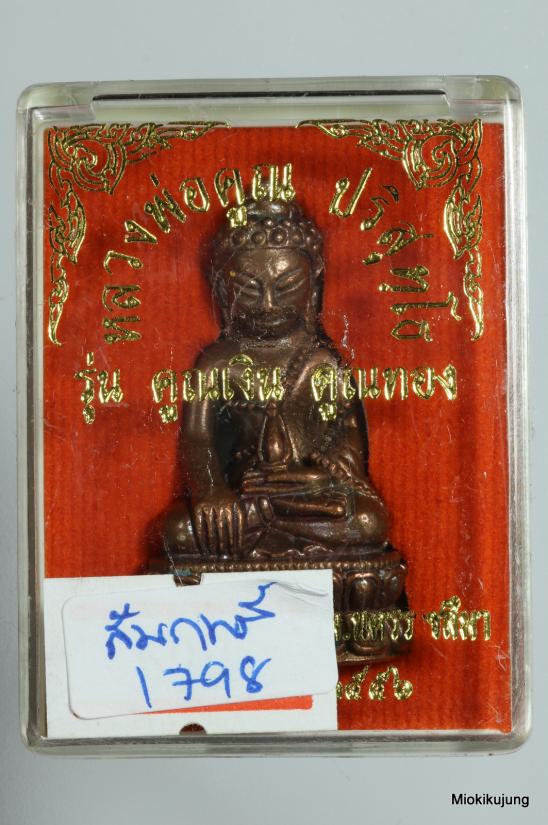 หลวงพ่อคูณ ปริสุทฺโธ
รุ่น คูณเงิน คูณทอง
จ.นครราชสีมา
๒๕๕๖
สัมฤทธิ์
1798
Miokikujung